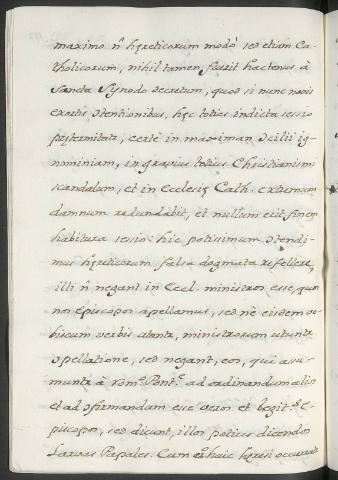 maximo n̄ hęreticorum modò sed etiam Ca-
tholicorum, nihil tamen fuerit hactenus à
Sancta Synodo decretum, quod si nunc novis
exortis ɔtentionibus, hęc toties indicta sessio
pręternittatur, certè in maximam Ɔcilii ig-
nominiam, in gravius totius Christianismi
scandalum, et in Ecclesię Cath. extremum
damnum redundabit, et nullum erit finem
habitura sessio: hic potissimum ɔtendi-
mus hęreticorum falsa dogmata refellere,
illi n̄ negant in Eccl. ministros esse, quos
nos Episcopos apellamus, sed nè eisdem no-
biscum verbis utantr, ministrorum utuntr
apellatione, sed negant, eos, qui assu-
muntr à Romo Pont.e ad ordinandum alios
et ad ɔfirmandum esse veros et legit.s E-
piscopos, sed dicunt, illos potius dicendos
Larvas Papales. Cum huic hęresi occurrat